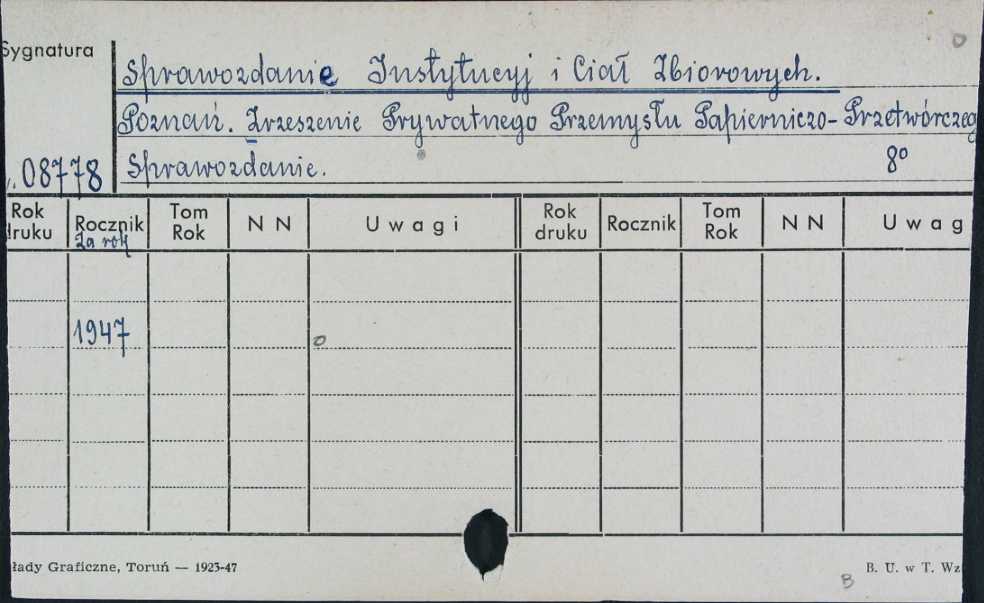 Sygnatura
Sprawozdanie Instytucyj i Ciał Zbiorowych.
Poznań. Zrzeszenie Prywatnego Przemysłu Papierniczo-Przetwórczeg
08778 Sprawozdanie. 8º
Rok druku Rocznik Tom Rok N N Uwagi Rok druku Rocznik Tom Rok N N Uwag
Za rok
1947
łady Graficzne, Toruń — 1923-47 B. U. w T. Wz
B